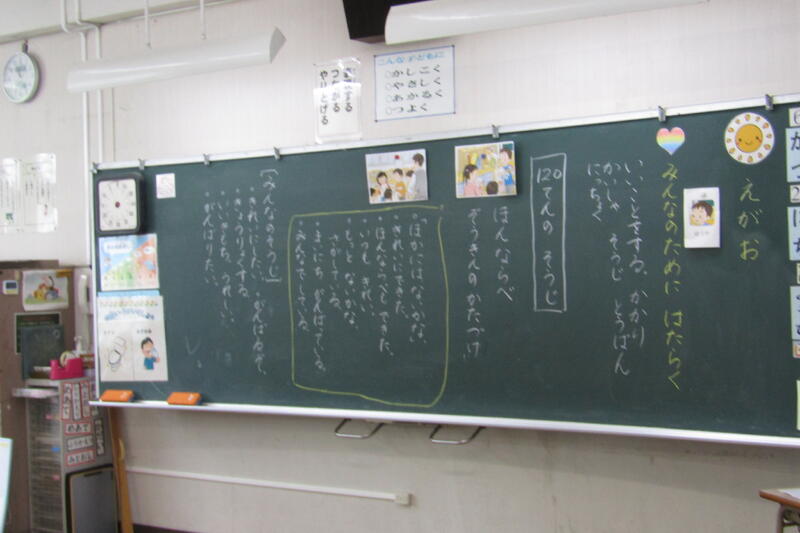 えがお
みんなのために はたらく
いいことをする。かかり
かいしゃ そうじ とうばん
にっちょく
120てんの そうじ
ほんならべ
ぞうきんのかたづけ
・ほかにはないかな。
・きれいにできた。
ほんならべもできた。
いつも きれい。
もっと ないかな。
さがしている。
・まいにち がんばっている。
みんなでしている。
[みんなのそうじ]
・きれいにしたい。
・がんばるぞ。
・きょうりょくする。
・いいきもち。うれしい。
・がんばりたい。
つながる
やりとげる
こんな子どもに
○かしこく
○やさしく
○あかるく
○つよく
めあて